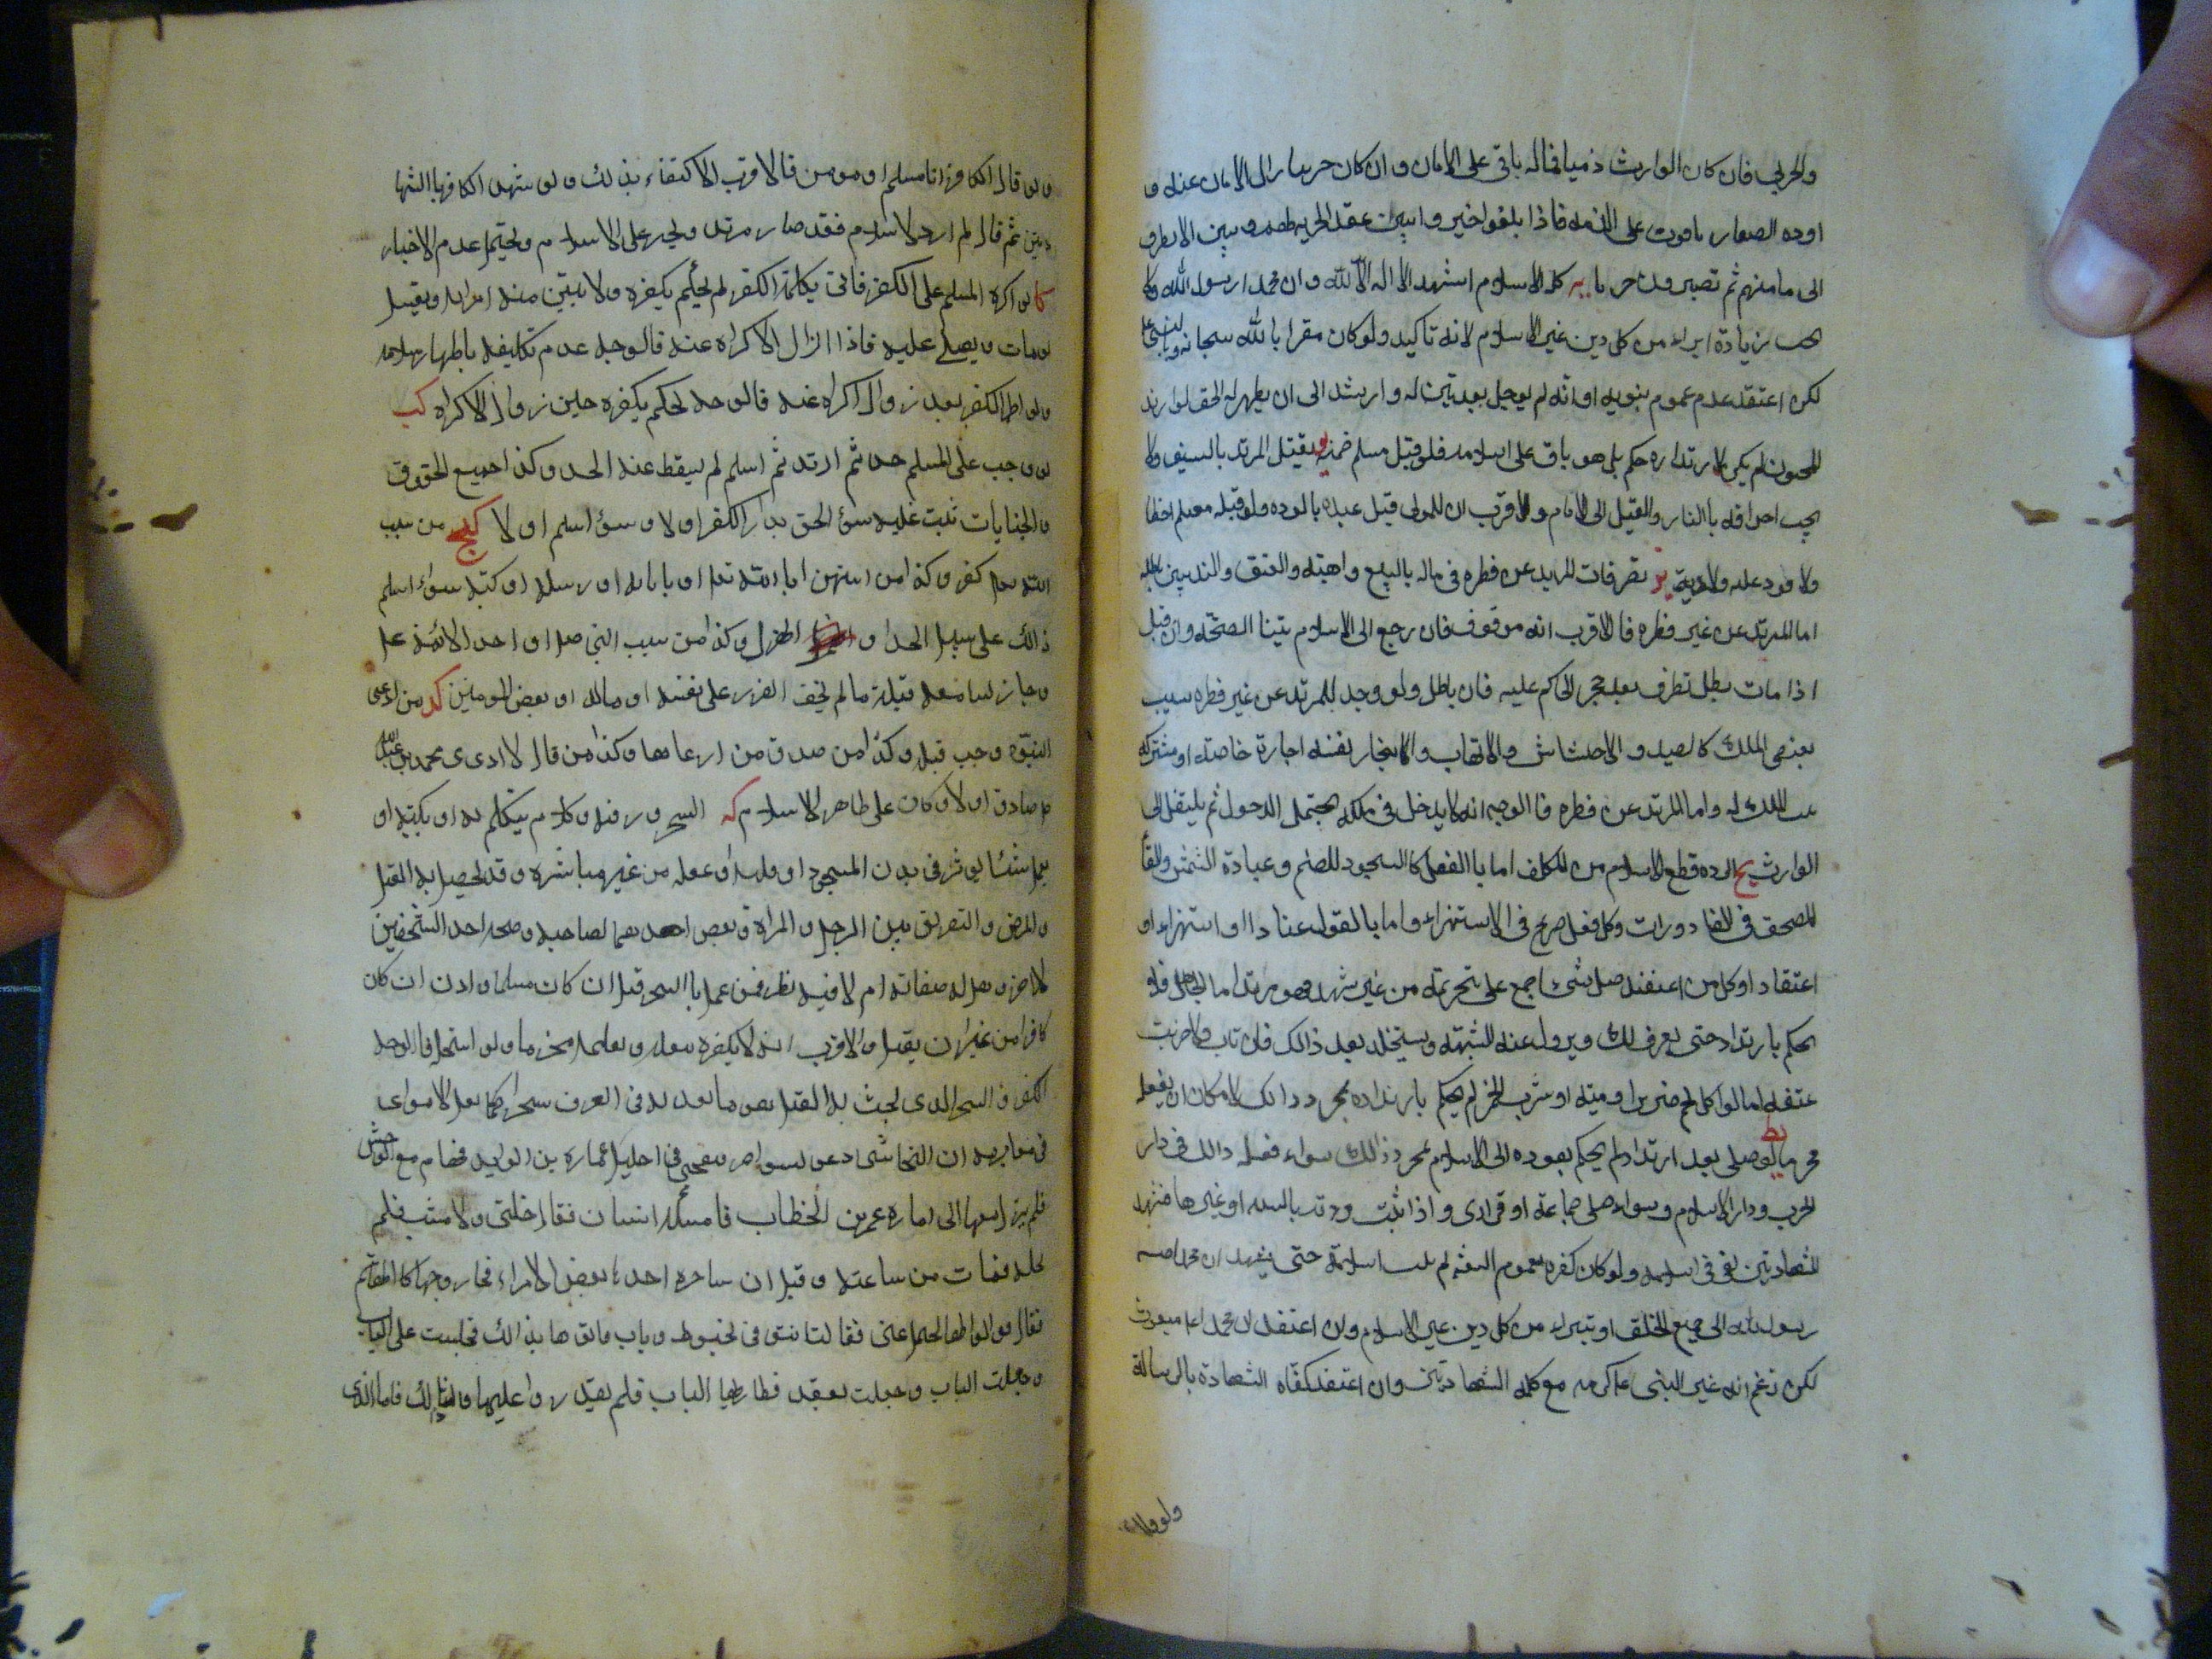 والحربي فان كان الوارث ذميا فماله باقي على الامان و ان كان حربيا زال الامان عنه و
اوده الصغار باقون على الذمة فاذا بلغوا خير وا بين عقد الجزية لهم و بين الانصراف
الى مامنهم ثم تصيرون حربا يه كلمة الاسلام اشهد الا اله الا الله و ان محمدا رسول الله ولا
يجب زيادة ابراء من كل دين غير الاسلام لانه تاكيد ولو كان مقرا بالله سبحانه
لكن اعتقد عدم عموم نبوته او انه لم يوجد بعد تبين له وارشد الى ان يظهر له الحق لو ارتد
المجنون لم يكن لارتداده حكم بل هو باق على اسلامه فلو قتله مسلم ضمنه يو يقتل المرتد بالسيف ولا
يجب احراقه بالنار والقتل الى الامام والاقرب ان للمولى قتل عبده بالرده ولو قتله مسلم اخطا
ولا قود عليه ولا دية يز تصرفات المرتد عن فطره في ماله بالبيع والهبة والعتق والتدبير باطله
اما المرتد عن غير فطره فالاقرب انه موقوف فان رجع الى الاسلام تبينا الصحة وان قتل
اذا مات بطل تصرف بعد حجر الحاكم عليه فان باطل ولو وجد للمرتد عن غير فطره سبب
يقتضي الملك كالصيد والاحتشاش والاتهاب والايجار نفسه اجارة خاصة او مشتركه
ثبت الملك له واما المرتد عن فطره فالوجه انه لا يدخل في ملكه يحتمل الدخول ثم ينتقل الى
الوارث يح الرده قطع الاسلام من المكلف اما باالفعل كالسجود للصنم و عبادة الشمس والقاء
المصحف في القاذورات وكل فعل صريح في الاستهزاء واما بالقول عنادا او استهزاء او
اعتقادا وكل من اعتقد حل شيء اجمع على تحريمه من غير شبهه فهو مرتد اما الجاهل فلا
يحكم بارتداده حتى يعرف ذلك ويزول عنه الشبهة ويستحله بعد ذالك فان تاب والا ضربت
عنقه اما لو اكل لحم خنزير او ميتة او شرب الخمر لم يحكم بارتداده بمجرد ذالك لامكان ان يفعله
محرما يط لو صلى بعد ارتداده لم يحكم بعوده الى الاسلام بمجرد ذالك سواء فعله ذالك في دار
الحرب و دار الاسلام و سواء صلى جماعة او فرادى و اذا ثبت ردته بالبينه او غيرها فشهد
الشهادتين كفى في اسلامه ولو كان كفره بعموم البعثة لم يثبت اسلامه حتى يشهد ان محمدا
رسول الله الى جميع الخلق او تبراء من كل دين غير الاسلام وان اعتقد ان محمدا مبعوث
لكن زعم انه غير النبي مع كلمة الشهادتين وان اعتقد كفاه الشهادة بالرسالة
ولو قال
ولو قال الكافر انا مسلم او مومن فالاقرب الاكتفاء بذلك ولو شهد الكافر باالشها
دتين ثم قال لم ارد الاسلام فقد صار مرتد ويجبر على الاسلام ويحتمل عدم الاجبار
كا لو اكره المسلم على الكفر فاتى بكلمة الكفر لم يحكم بكفره ولا تبين منه امراته ويغسل
لو مات و يصلى عليه فاذا زال الاكراه عنه فالوجه عدم تكليفه باظهار اسلامه
ولو اظهر الكفر بعد زوال الاكراه عنه فالوجه الحكم بكفره حين زوال الاكراه كب
لو وجب على المسلم حد ثم ارتد ثم اسلم لم يسقط عنه الحد وكذا جميع الحقوق
والجنايات تثبت عليه سواء لحق بدار الكفر او لا وسواء اسلم او لا كج من سب
الله تعالى كفر وكذا من استهزء بالله تعالى او باياته او رسله او كتبه سواء اسلم
ذالك على سبيل الجد او الهزل وكذا من سب النبي ص او احد الائمة ع
وجاز لسامعه قتله ما لم يخف الضرر على نفسه او ماله او بعض المومنين كد من ادعى
النبوة وجب قتله وكذا من صدق من ادعاها وكذا من قال لا ادرى محمد بن عبد الله
ص صادق او لا وكان على ظاهر الاسلام كه السحر ورقيه وكلام يتكلم به او يكتبه او
يعمل شيئا يوثر في بدن المسحور او قلبه او عقله من غير مباشره وقد يحصل به القتل
والمرض والتفريق بين الرجل والمراة وبغض احدهما لصاحبه ومحبة احد الشخصين
للاخر وهل له حقيقة ام لا فيه نظر فمن عمل باالسحر قتل ان كان مسلما وادب ان كان
كافرا من غير ان يقتل والاقرب انه لا يكفره بتعلمه و تعليمه محرما ولو استحله فالوجه
الكفر والسحر الذى يجب به القتل هو ما يعد له في العرف سحرا كما نقل الاموى
في مغازيه ان النجاشى دعى السواحر فنفخن في احليل عماره بن الوليد فهام مع الوحش
فلم يزل معها الى اماره عمر بن الخطاب فامسكه انسان فقال خلنى والا مت فلم
يخله فمات من ساعته وقيل ان ساحره اخذها بعض الامراء فجاء زوجها كالهائم
فقال قولوا لها تحل عنى فقالت ائتونى بخيوط وباب فاتوها بذالك فجلست على الباب
وجعلت تعقد فطار بها الباب فلم يقدروا عليها و امثال ذالك فاما الذى